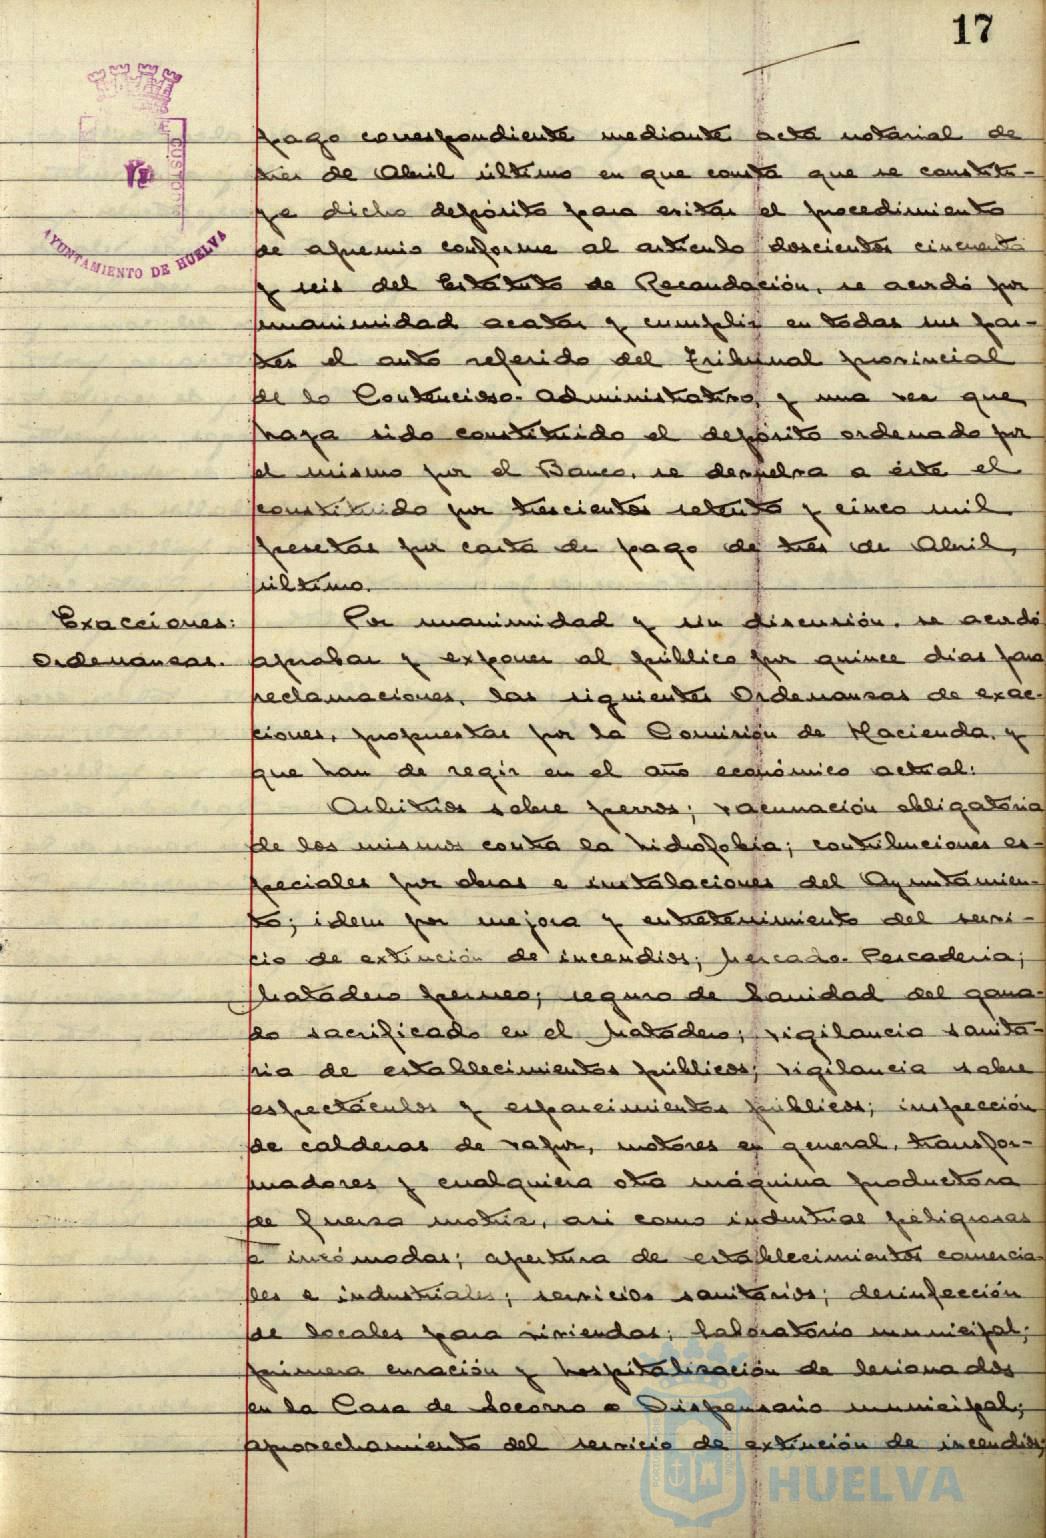 17
CUSTO
AYUNTAMIENTO DE HUELVA
pago correspondiente mediante acta notarial de
tres de Abril último en que consta que se constitu-
ye dicho depósito para evitar el procedimiento
de apremio conforme al artículo doscientos cincuenta
y seis del Estatuto de Recaudación, se acordó por
unanimidad acatar y cumplir en todas sus par-
tes el auto referido del Tribunal provincial
de lo Contencioso-Administrativo, y una vez que
haya sido constituido el depósito ordenado por
el mismo por el Banco, se devuelva a éste el
constituido por trescientas setenta y cinco mil
pesetas por carta de pago de tres de Abril
último.
Exacciones:
Ordenanzas.
Por unanimidad y sin discusión, se acordó
aprobar y exponer al público por quince días para
reclamaciones, las siguientes Ordenanzas de exac-
ciones, propuestas por la Comisión de Hacienda, y
que han de regir en el año económico actual:
Arbitrios sobre perros; vacunación obligatoria
de los mismos contra la hidrofobia; contribuciones es-
peciales por obras e instalaciones del Ayuntamien-
to; idem por mejora y entretenimiento del servi-
cio de extinción de incendios; Mercado-Pescadería;
Matadero perneo; seguro de Sanidad del gana-
do sacrificado en el Matadero; vigilancia sanita-
ria de establecimientos públicos; vigilancia sobre
espectáculos y esparcimientos públicos; inspección
de calderas de vapor, motores en general, transfor-
madores y cualquiera otra máquina productora
de fuerza motriz, así como industrias peligrosas
e incómodas; apertura de establecimientos comercia-
les e industriales; servicios sanitarios; desinfección
de locales para viviendas; laboratorio municipal;
primera curación y hospitalización de lesionados
en la Casa de Socorro o Dispensario municipal;
aprovechamiento del servicio de extinción de incendios;
HUELVA